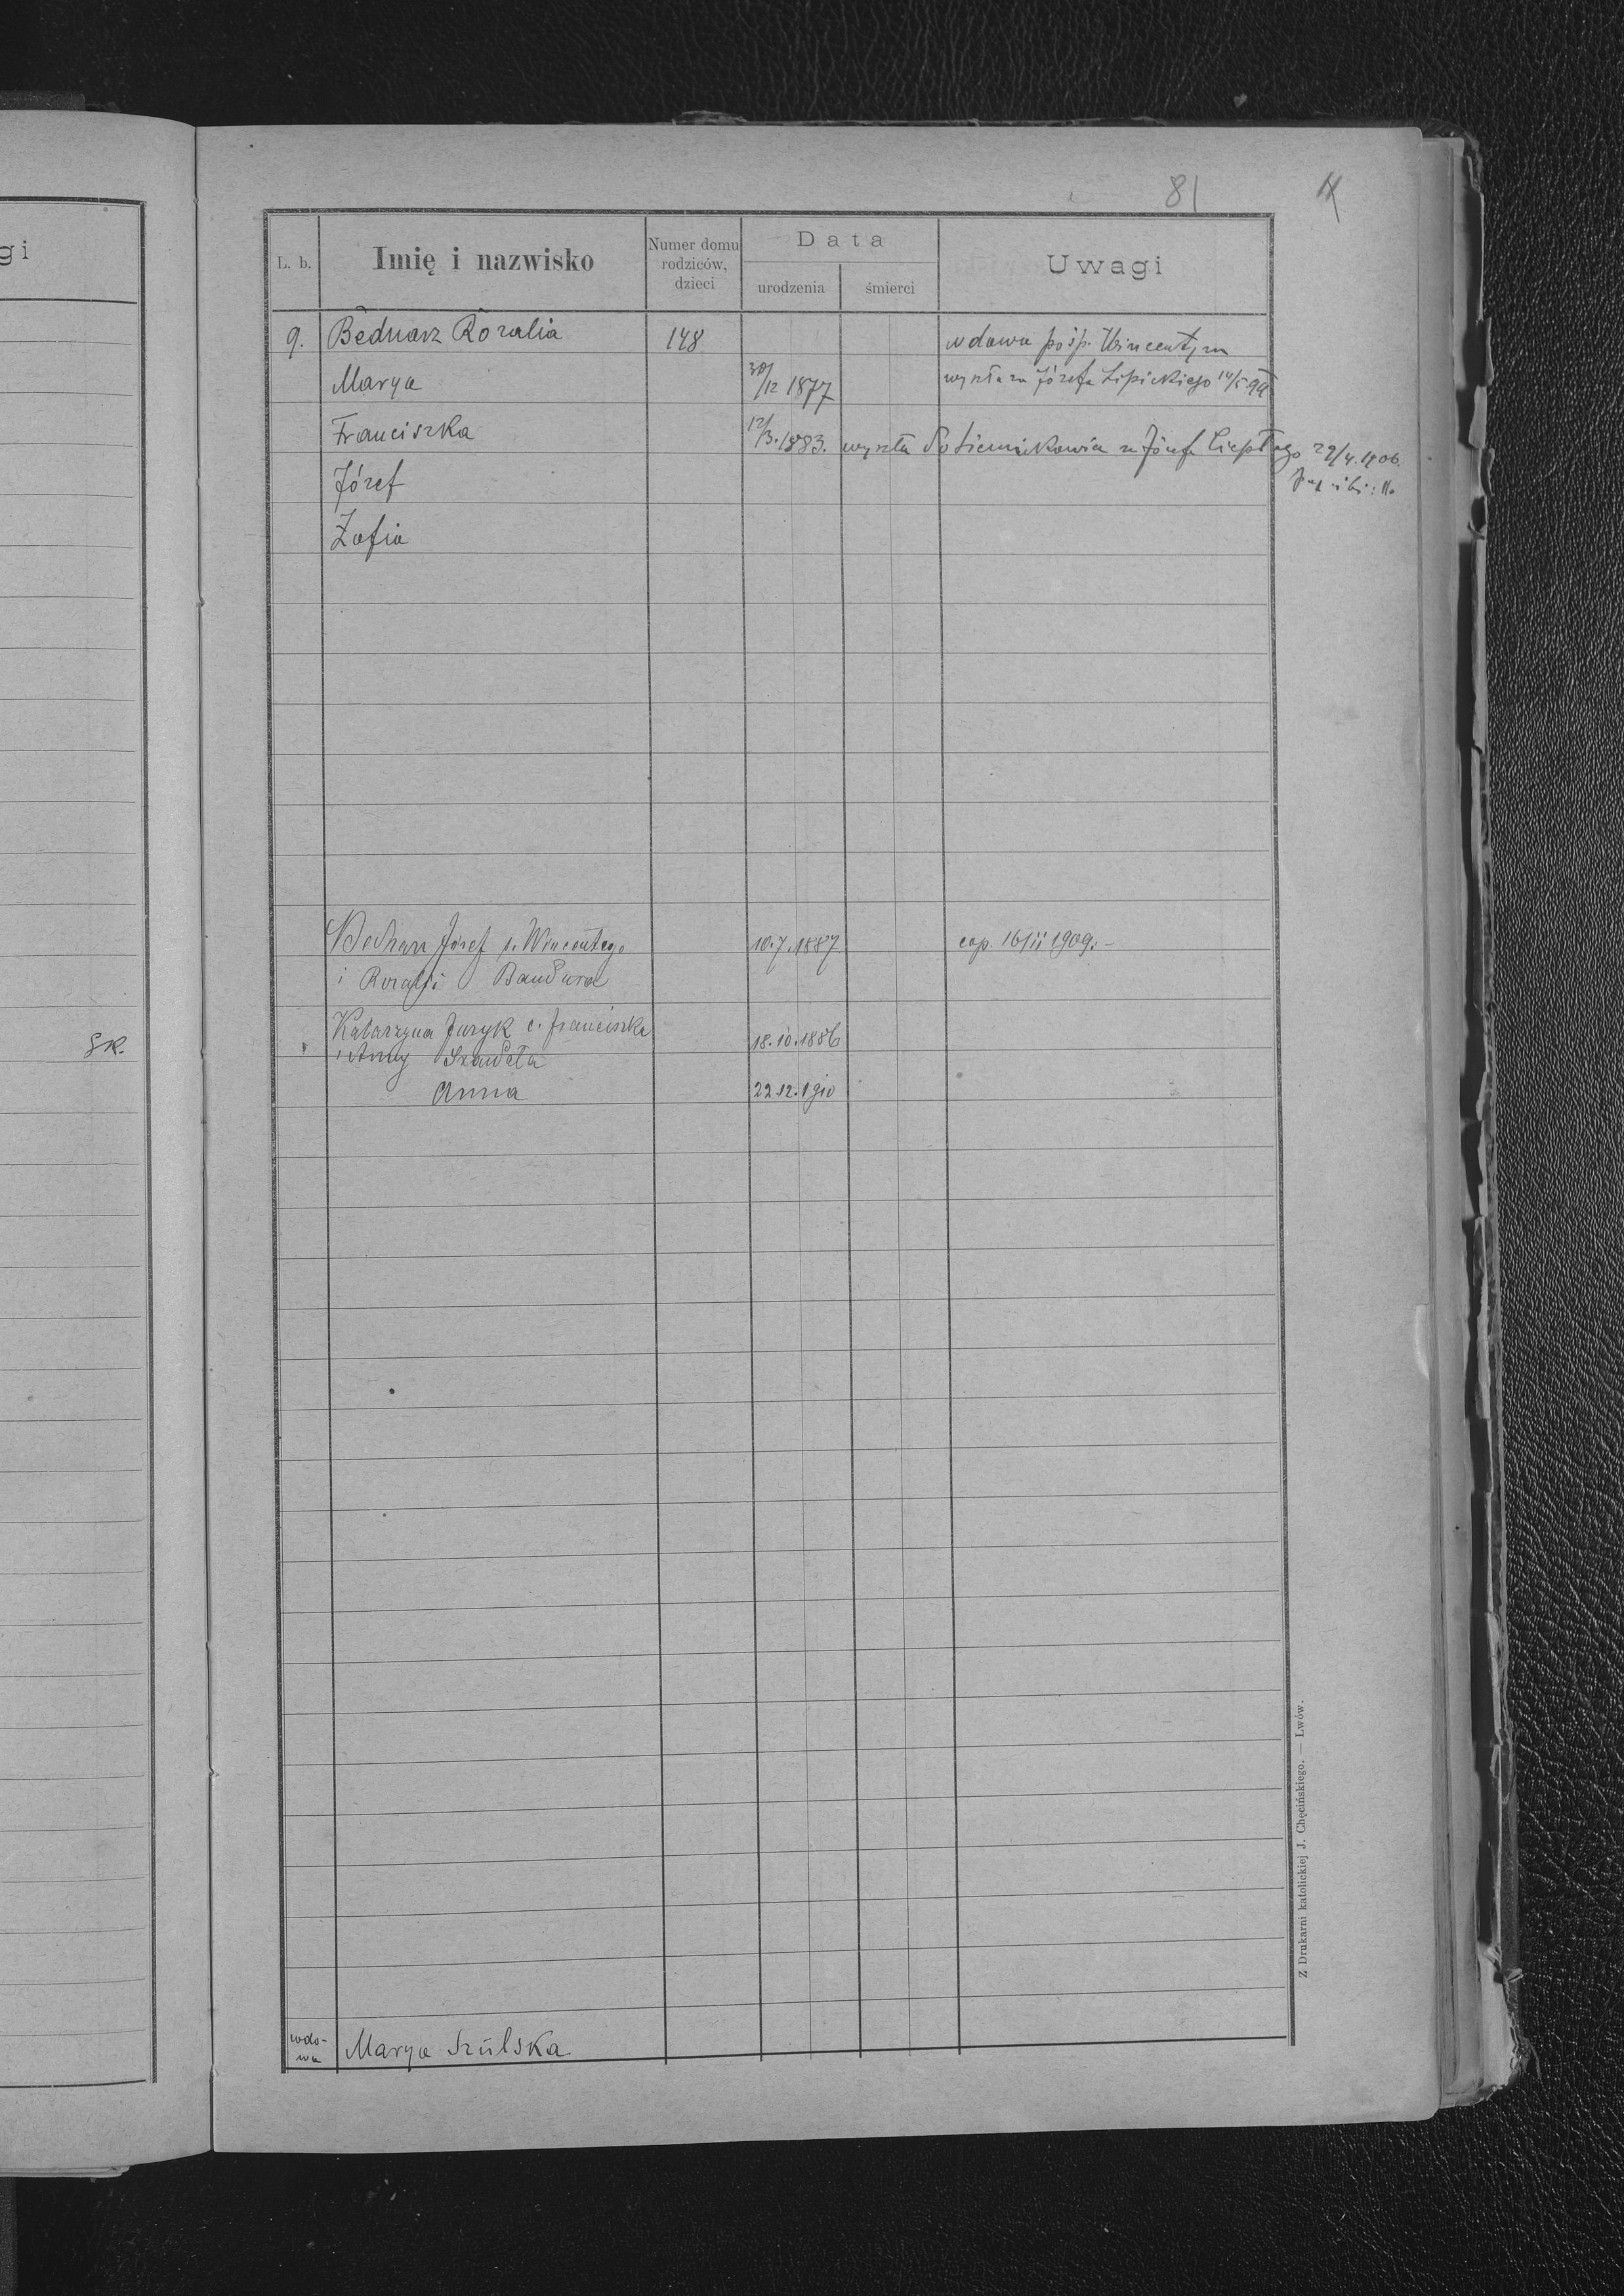 gi
gk.
81
L. b.
Imię i nazwisko
Numer domu rodziców, dzieci
Data
urodzenia
śmierci
Uwagi
9. Bednarz Rozalia 148 wdowa po śp. Wincentym
Marya 30/12 1877 wyszła za Józefa Lipickiego 14/5
Franciszka 12/3.1883. wyszła za Józefa Ciepłego 29/4.1906.
Józef
Zofia
Józef s. Wincentego 10.7.1887 cop. 16/11 1909.-
i Rozalii Bandura
Katarzyna Juzyk c. Franciszka 18.10.1886
i Anny
Anna 22.12.1910
wdo-
wa Marya Szulska
Z Drukarni katolickiej J. Chęcińskiego. — Lwów.